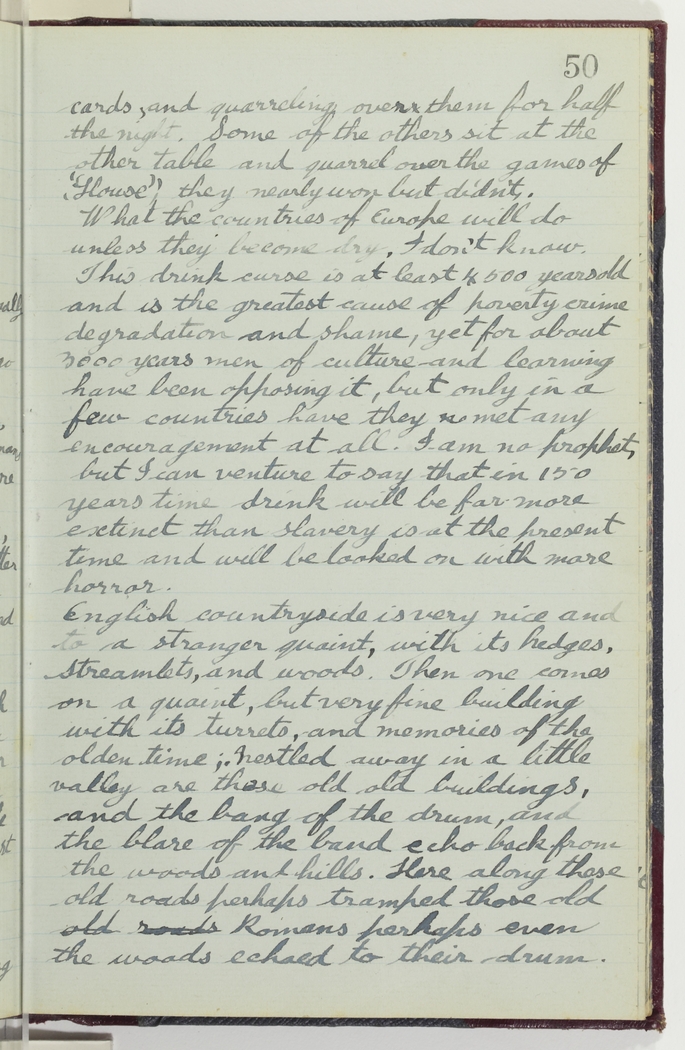 50
cards, and quarreling over them for half
the night. Some of the others sit at the
other table and quarrel over the games of
('House') they nearly won but didn't.
What the countries of Europe will do
unless they become dry, I don't know.
This drink curse is at least 4500 years old
and is the greatest cause of poverty crime
degradation and shame, yet for about
3000 years men of culture and learning
have been opposing it, but only in a
few countries have they met any
encouragement at all. I am no prophet,
but I can venture to say that in 150
years time drink will be far more
extinct than slavery is at the present
time and will be looked on with more
horror.
English countryside is very nice and
to a stranger quaint, with its hedges,
streamlets, and woods. Then one comes
on a quaint, but very fine building
with its turrets, and memories of the
olden time; nestled away in a little
valley are these old old buildings,
and the bang of the drum, and
the blare of the band echo back from
the woods and hills. Here along these
old roads perhaps tramped those old
old roads Romans perhaps even
the woods echoed to their drum.